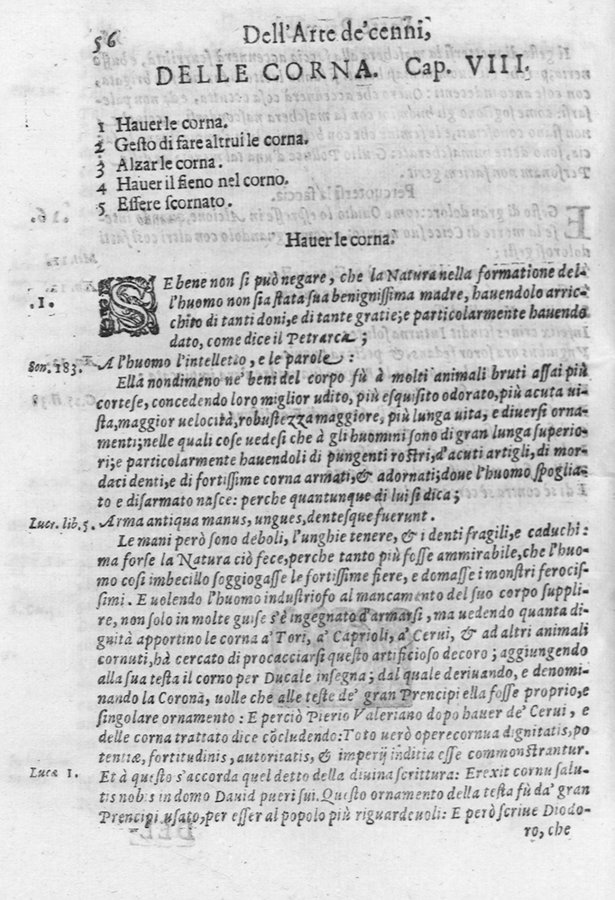 56
Dell'Arte de'cenni,
DELLE CORNA. Cap. VIII.
1 Hauer le corna.
2 Gesto di fare altrui le corna.
3 Alzar le corna.
4 Hauer il fieno nel corno.
5 Essere scornato.
Hauer le corna.
.1.
SE bene non si può negare, che la Natura nella formatione del-
l'huomo non sia stata sua benignissima madre, hauendolo arric-
chito di tanti doni, e di tante gratie; e particolarmente hauendo
dato, come dice il Petrarca;
Son. 183. A l'huomo l'intelletto, e le parole:
Ella nondimeno ne' beni del corpo fù à molti animali bruti assai più
cortese, concedendo loro miglior udito, più esquisito odorato, più acuta ui-
sta, maggior uelocità, robustezza maggiore, più lunga uita, e diuersi orna-
menti; nelle quali cose uedesi che à gli huomini sono di gran lunga superio-
ri; e particolarmente hauendoli di pungenti rostri, d'acuti artigli, di mor-
daci denti, e di fortissime corna armati, & adornati; doue l'huomo spoglia-
to e disarmato nasce: perche quantunque di lui si dica;
Lucr. lib. 5. Arma antiqua manus, ungues, dentesque fuerunt.
Le mani però sono deboli, l'unghie tenere, & i denti fragili, e caduchi:
ma forse la Natura ciò fece, perche tanto più fosse ammirabile, che l'huo-
mo cosi imbecillo soggiogasse le fortissime fiere, e domasse i monstri ferocis-
simi. E uolendo l'huomo industrioso al mancamento del suo corpo suppli-
re, non solo in molte guise s'è ingegnato d'armarsi, ma uedendo quanta di-
gnità apportino le corna a' Tori, a' Caprioli, a' Cerui, & ad altri animali
cornuti, hà cercato di procacciarsi questo artificioso decoro; aggiungendo
alla sua testa il corno per Ducale insegna; dal quale deriuando, e denomi-
nando la Corona, uolle che alle teste de' gran Prencipi ella fosse proprio, e
singolare ornamento: E perciò Pierio Valeriano dopo hauer de' Cerui, e
delle corna trattato dice cōcludendo: Toto uerò opere cornua dignitatis, po
tentiæ, fortitudinis, autoritatis, & imperij inditia esse commonstrantur.
Lucæ 1. Et à questo s'accorda quel detto della diuina scrittura: Erexit cornu salu-
tis nobis in domo Dauid pueri sui. Questo ornamento della testa fù da' gran
Prencipi usato, per esser al popolo più riguardeuoli: E però scriue Diodo-
ro, che